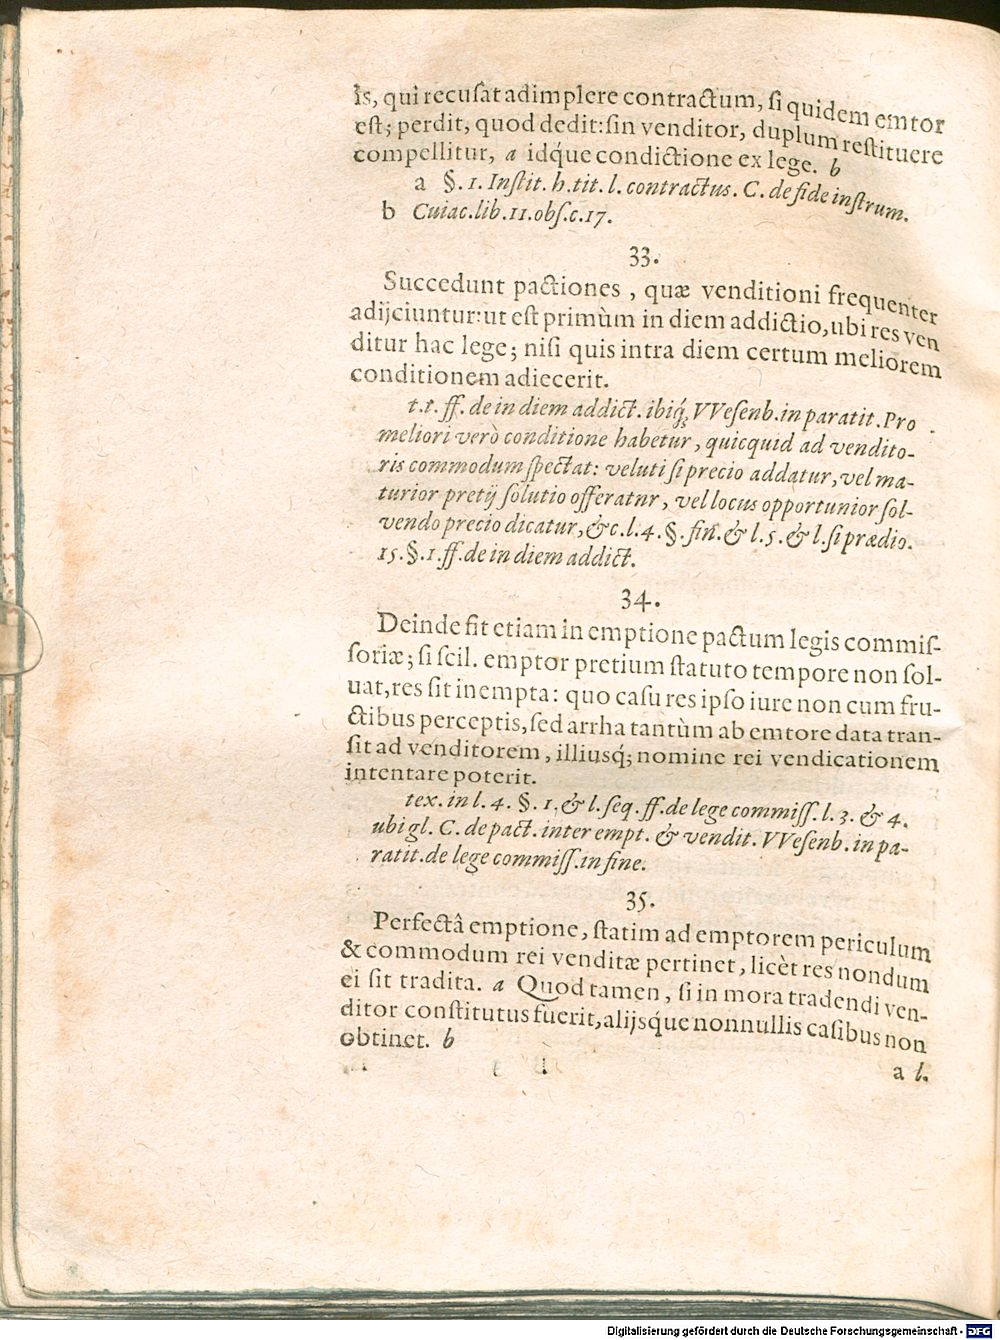 is, qui recusat adimplere contractum, si quidem emtor
est; perdit, quod dedit: sin venditor, duplum restituere
compellitur, a idq́ue condictione ex lege. b
a §. 1. Instit. h. tit. l. contractus. C. de fide instrum.
b Cuiac. lib. 11. obs. c. 17.
33.
Succedunt pactiones, quæ venditioni frequenter
adijciuntur: ut est primùm in diem addictio, ubi res ven
ditur hac lege; nisi quis intra diem certum meliorem
conditionem adiecerit.
t.t. ff. de in diem addict. ibiq́; VVesenb. in paratit. Pro
meliori verò conditione habetur, quicquid ad vendito-
ris commodum spectat: veluti si precio addatur, vel ma-
turior pretij solutio offeratnr, vel locus opportunior sol-
vendo precio dicatur, &c. l. 4. §. fin. & l. 5. & l. si prædio.
15. §. 1. ff. de in diem addict.
34.
Deinde fit etiam in emptione pactum legis commis-
soriæ; si scil. emptor pretium statuto tempore non sol-
uat, res sit inempta: quo casu res ipso iure non cum fru-
ctibus perceptis, sed arrha tantùm ab emtore data tran-
sit ad venditorem, illiusq́; nomine rei vendicationem
intentare poterit.
tex. in l. 4. §. 1. & l. seq. ff. de lege commiss. l. 3. & 4.
ubi gl. C. de pact. inter empt. & vendit. VVesenb. in pa-
ratit. de lege commiss. in fine.
35.
Perfectâ emptione, statim ad emptorem periculum
& commodum rei venditæ pertinet, licèt res nondum
ei sit tradita. a Quod tamen, si in mora tradendi ven-
ditor constitutus fuerit, alijsq́ue nonnullis casibus non
obtinet. b
a l.
Digitalisierung gefördert durch die Deutsche Forschungsgemeinschaft - DFG